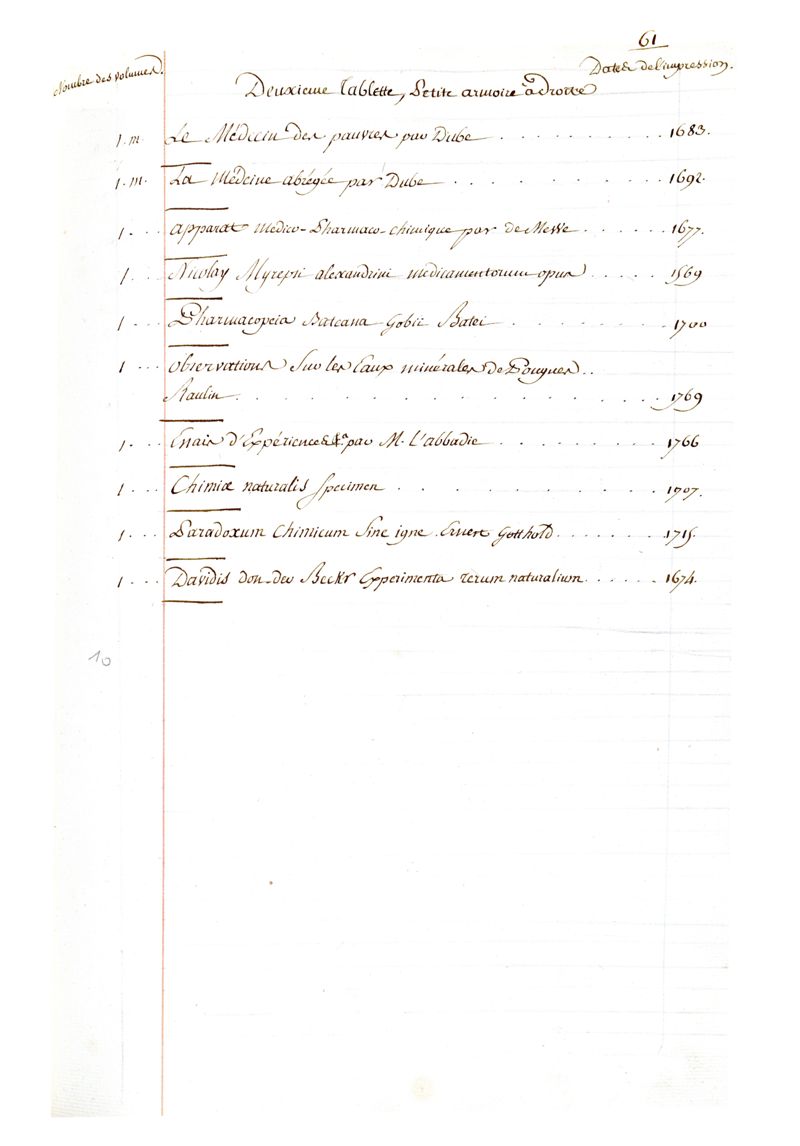 61
Nombre des volumes. Dates de l'impression.
Deuxieme Tablette, Petite armoire à droite
1. m. Le Médecin des pauvres par Dubé . . . . . . . . . 1683.
1. m. La Médecine abrégée par Dube . . . . . . . . . 1692.
1 . . . apparat Medico-Pharmaco-chimique par de . . . . . . 1677.
1 . . . Nicolay Myrepsi alexandrini medicamentorum opus . . . . . 1569
1 . . . Pharmacopeia Bateana Gobii Batei . . . . . . . . 1700
1 . . . observations Sur les Eaux minérales de Pougues . .
Raulin . . . . . . . . . . . . . . . . 1769
1 . . . Essais d'Expériences &a. par M. L'abbadie . . . . . . . 1766
1 . . . Chimiæ naturalis Specimen . . . . . . . . . . 1707.
1 . . . Paradoxum Chimicum Sine igne . Ernest Gotthold . . . . . . . 1715.
1 . . . Davidis von-der Beckr Experimenta rerum naturalium . . . . . 1674.
10